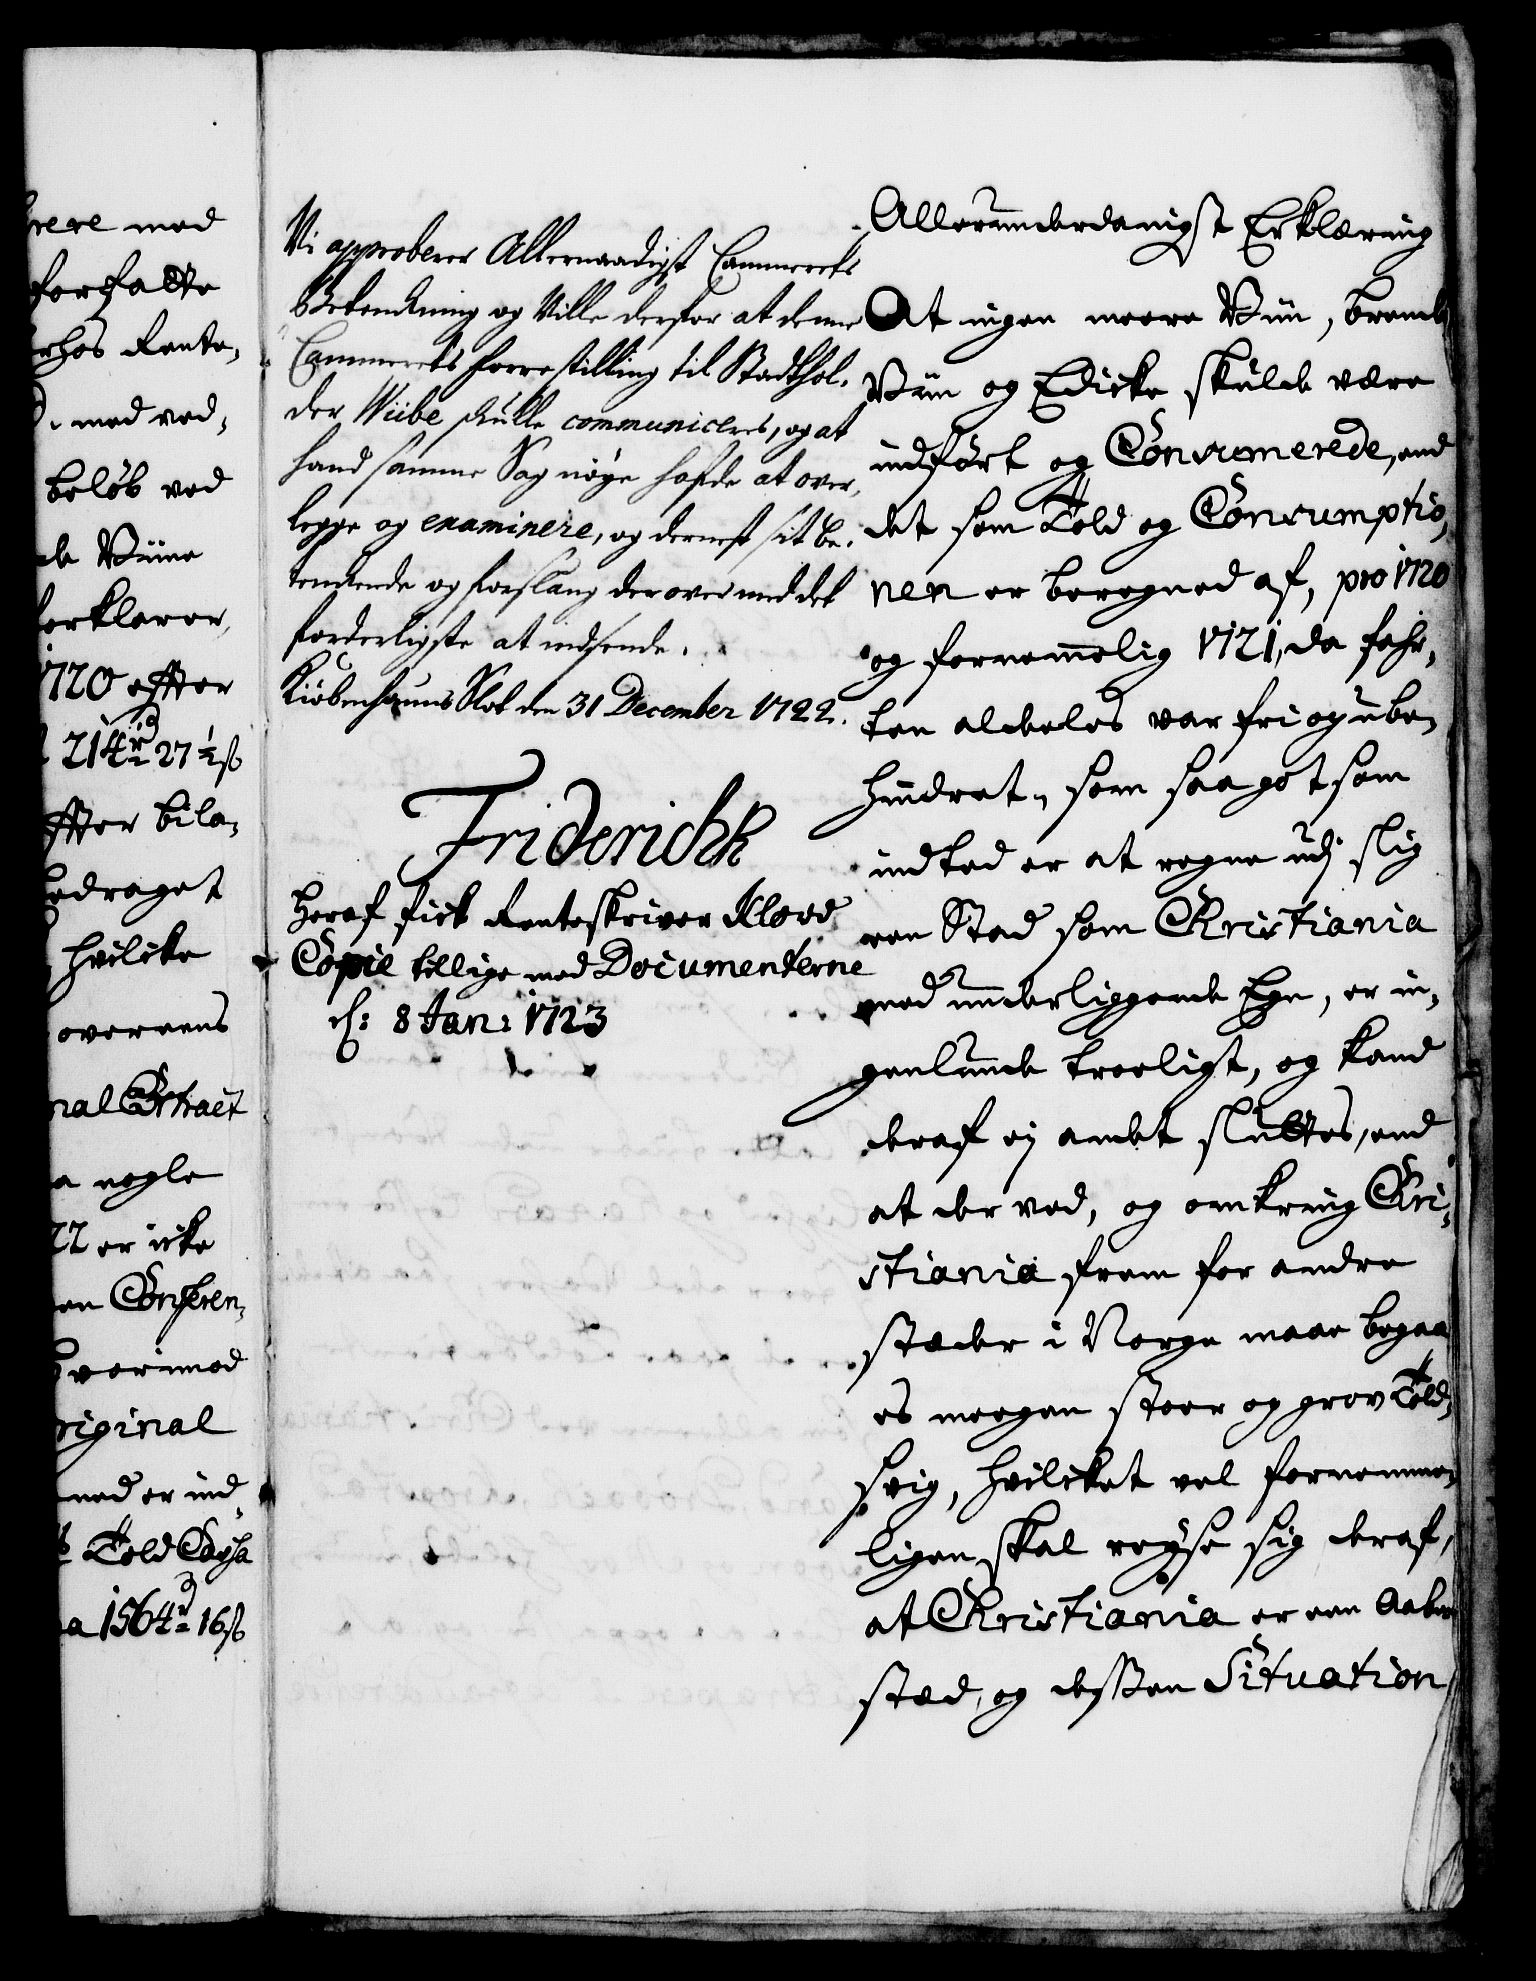 rere med
forfatte
rhos Rente,
med ved,
beløb ved
de Viine
erklerer,
1720 effter
214 rd 27 ½ ß
ffter bila,
edraget
hvilcke
overeens
nal Extract
a nogle
22 er icke
en Conferen,
vorimod
riginal
ned er ind,
Told Cassa
a 1564 rd 16 ß
Vi approberer Allernaadigst Cammerets
Betenckning og Ville derfor at denne
Cammerets forrestilling til Stadthol,
der Wiibe skulle communiceres, og at
hand samme Sag nøye hafde at over,
legge og examinere, og dernest sit be,
tenckende og forslaug derover med det
forderligste at indsende.
Kiøbenhauns Slot den 31 December 1722.
Friderich R
Heraf fick Renteskriver Kloed
Copie tillige med Documenterne
d: 8 Jan: 1723
Allerunderdanigst Erklæring
At ingen meere Viin, brende
Viin og Edicke skulde være
indført og Consumerede, end
det som Told og Consumptio,
nen er beregned af, pro 1720
og fornemmelig 1721, da fahr,
ten aldeles var fri og ube,
hindret, som saa got som
indted er at regne udj slig
een Stad som Christiania
med underliggende Egn, er in,
genlunde troeligt, og kand
deraf ej andet sluttes, end
at der ved, og omkring Chri,
stiania frem for andre
stæder i Norge maae begaa
es meegen stoer og grov Told,
svig, hvilcket vel fornemme,
ligen skal reyse sig deraf,
at Christiania er een Aaben
stæd, og dessen Situation